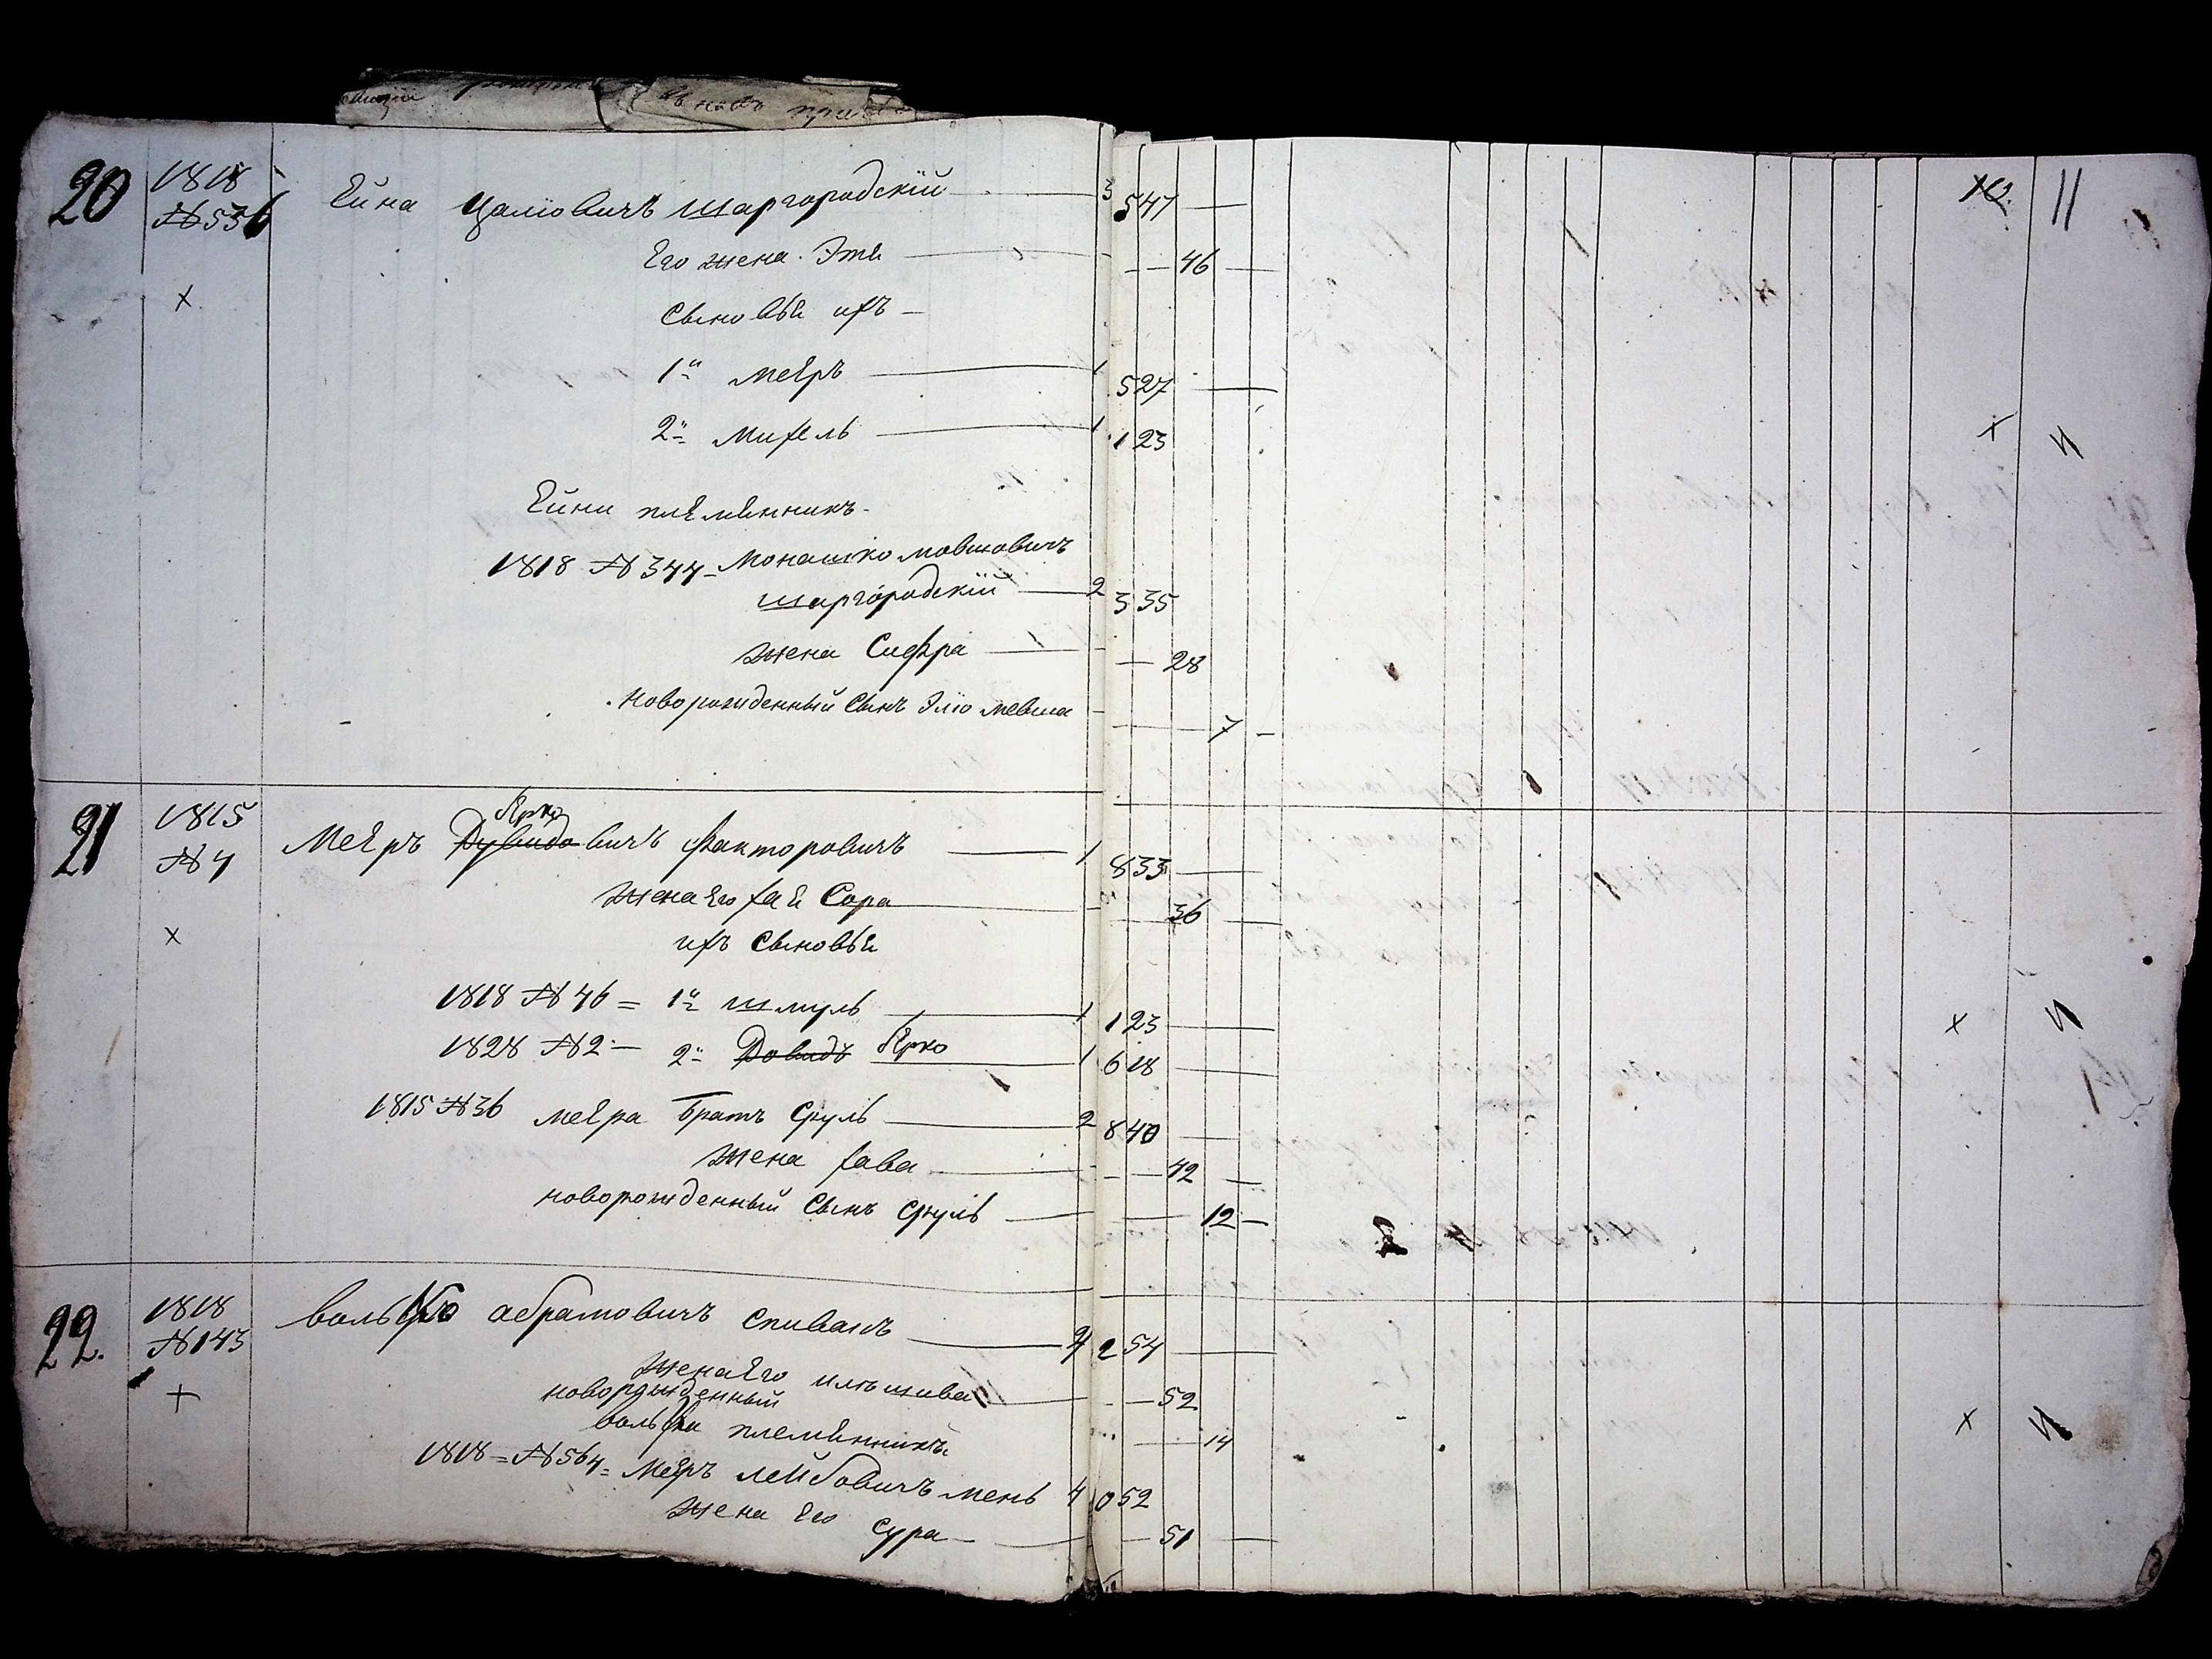 20 1818 Ейна Цаліовичъ Шаргородскій 3 547
№ 536
Его жена Этя 46
х
Сыновья ихъ
1й Мееръ 1 527
2й Михель 1 123
Ейни племянникъ
1818 № 344 Монашко Мовшовичъ
Шаргородскій 2 335
жена Сифра 28
Новорожденный Сынъ Эліо Мевша 7
11
х
21 1815 Ярко
№ 4 Мееръ Дувидовичъ Факторовичъ 1 833
жена Его Хая Сора 36
х ихъ Сыновья
1818 № 46 = 1й Шмуль 1 123
1828 № 2 — 2й Довидъ Ярко 1 618
1815 № 36 Меера Братъ Сруль 2 840
жена Хава 42
новорожденный Сынъ Сруль 12
х
22. 1818 Вольфко Абрамовичъ Спивакъ 254
№ 143
жена Его 52
х новорожденный
Вольфка племянникъ 14
1818 = № 564 = Мееръ Лейбовичъ мень 4 052
жена Его
Сура 51
х